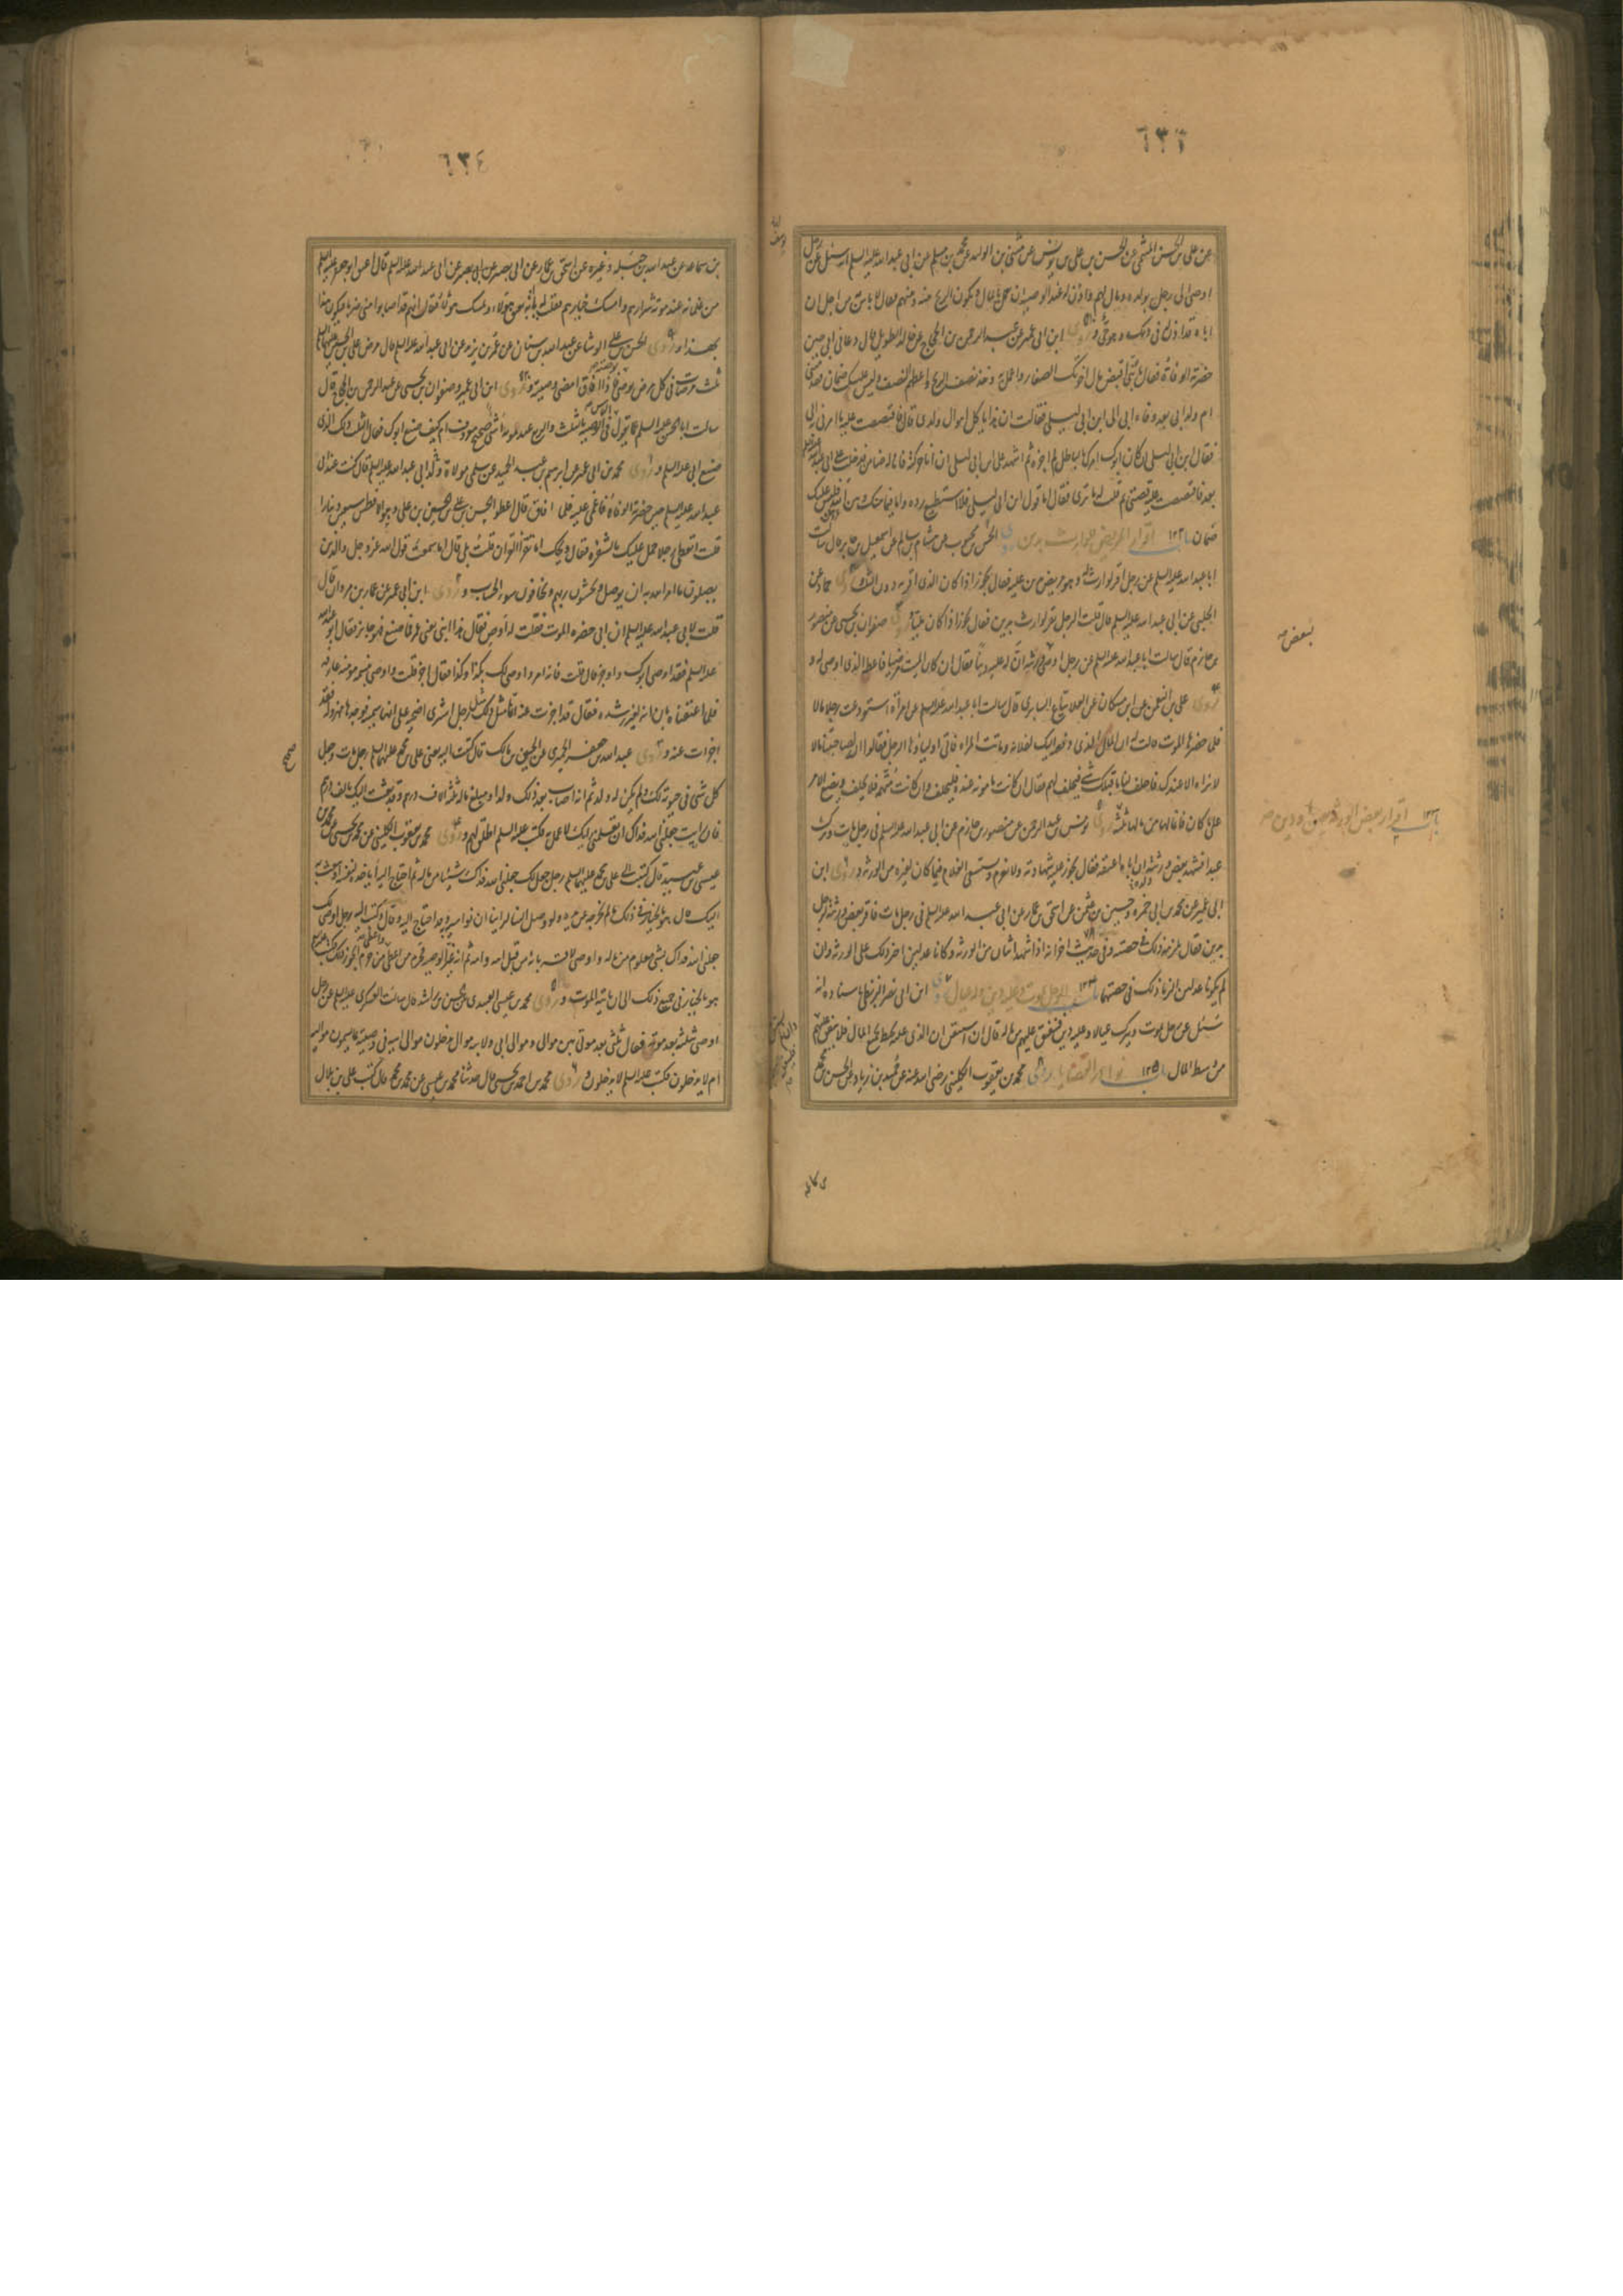 ٦٣٦
عن علی بن الحسن المیثمی عن الحسن بن علی بن یونس عن مثنی بن الولید عن محمد بن مسلم عن ابی عبد الله علیه السلم انه سئل عن رجل
اوصی الی رجل بولده و مال لهم فاذن له عند الوصیة ان یعمل بالمال و یکون الربح بینه و بینهم فقال لا باس به من اجل ان
اباه قد اذن له فی ذلک و هو حی و روی ابن ابی عمیر عن عبد الرحمن بن الحجاج عن خالد الطویل قال دعانی ابی حین
حضرته الوفاة فقال یا بنی اقبض مال اخوتک الصغار و اعمل به و خذ نصف الربح و اعطهم النصف و لیس علیک ضمان فقدمتنی
ام ولد ابی بعد وفاة ابی الی ابن ابی لیلی فقالت ان هذا یاکل اموال ولدی قال فاقتصصت علیه ما امرنی به ابی
فقال ابن ابی لیلی ان کان ابوک امرک بالباطل لم اجزه ثم اشهد علی ابن ابی لیلی ان انا حرکته فانا له ضامن فدخلت علی ابی عبد الله علیه السلم
بعد فاقتصصت علیه قصتی ثم قلت له ما تری فقال اما قول ابن ابی لیلی فلا استطیع رده و اما فیما بینک و بین الله فلیس علیک
ضمان باب ١٣٢ اقرار المریض للوارث بدین روی الحسن بن محبوب عن هشام بن سالم عن اسمعیل بن جابر قال سالت
ابا عبد الله علیه السلم عن رجل اقر لوارث له و هو مریض بدین علیه فقال یجوز اذا کان الذی اقر به دون الثلث و روی حماد عن
الحلبی عن ابی عبد الله علیه السلم قال قلت الرجل یقر لوارث بدین فقال یجوز اذا کان ملیا و روی صفوان بن یحیی عن منصور
بن حازم قال سالت ابا عبد الله علیه السلم عن رجل اوصی لبعض ورثته ان له علیه دینا فقال ان کان المیت مرضیا فاعط الذی اوصی له و
روی علی بن النعمن عن ابن مسکان عن العلا بیاع السابری قال سالت ابا عبد الله علیه السلم عن امراة استودعت رجلا مالا
فلما حضرها الموت قالت له ان المال الذی دفعته الیک لفلانة و ماتت المراة فاتی اولیاؤها الرجل فقالوا انه کان لصاحبتنا مال
لا نراه الا عندک فاحلف لنا ما قبلک شیء فیحلف لهم فقال ان کانت مامونة عنده فلیحلف و ان کانت متهمة فلا یحلف و یضع الامر
علی ما کان فانما لها من مالها ثلثه و روی یونس بن عبد الرحمن عن منصور بن حازم عن ابی عبد الله علیه السلم فی رجل مات و ترک
عبدا فشهد بعض ورثته ان اباه اعتقه فقال یجوز علیه شهادته و لا یغرم و یستسعی الغلام فیما کان لغیره من الورثة و روی ابن
ابی عمیر عن محمد بن ابی حمزة و حسین بن عثمن عن اسحق بن عمار عن ابی عبد الله علیه السلم فی رجل مات فاقر بعض ورثته لرجل
بدین فقال یلزمه ذلک فی حصته و فی حدیث اخر انه اذا شهد اثنان من الورثة و کانا عدلین اجیز ذلک علی الورثة و ان
لم یکونا عدلین الزما ذلک فی حصتهما باب ١٣٤ الرجل یموت و علیه دین و له عیال روی ابن ابی نصر البزنطی باسناده انه
سئل عن رجل یموت و یترک عیالا و علیه دین فینفق علیهم من ماله قال ان استیقن ان الذی علیه یحیط بجمیع المال فلا ینفق علیهم
من وسط المال باب ١٣٥ نوادر الوصایا روی محمد بن یعقوب الکلینی رضی الله عنه عن حمید بن زیاد عن الحسن بن محمد
ببعض
باب ١٣٣ اقرار بعض الورثة بعتق او دین
٦٣٤
بن سماعة عن عبد الله بن جبلة و غیره عن اسحق بن عمار عن ابی بصیر عن ابی عبد الله علیه السلم قال اعتق ابو جعفر علیه السلم
من غلمانه عند موته شرارهم و امسک خیارهم فقلت له یا ابه تعتق هؤلاء و تمسک هؤلاء فقال انهم قد اصابوا منی ضربا فیکون هذا
بهذا و روی الحسن بن علی الوشا عن عبد الله بن سنان عن عمر بن یزید عن ابی عبد الله علیه السلم قال مرض علی بن الحسین علیهما السلم
ثلث مرضات فی کل مرض یوصی بوصیة فاذا افاق امضی وصیته و روی ابن ابی عمیر و صفوان بن یحیی عن عبد الرحمن بن الحجاج قال
سالت ابا الحسن علیه السلم عما یقول الناس فی الوصیة بالثلث و الربع عند موته اشیء صحیح معروف ام کیف صنع ابوک فقال الثلث ذلک الذی
صنع ابی علیه السلم و روی محمد بن ابی عمیر عن ابرهیم بن عبد الحمید عن سلمی مولاة ولد ابی عبد الله علیه السلم قال کنت عند ابی
عبد الله علیه السلم حین حضرته الوفاة فاغمی علیه فلما افاق قال اعطوا الحسن بن علی بن الحسین بن علی و هو الافطس سبعین دینارا
قلت اتعطی رجلا حمل علیک بالشفرة فقال ویحک اما تقرأ القران قلت بلی قال اما سمعت قول الله عز و جل و الذین
یصلون ما امر الله به ان یوصل و یخشون ربهم و یخافون سوء الحساب و روی ابن ابی عمیر عن عمار بن مروان قال
قلت لابی عبد الله علیه السلم ان ابی حضره الموت فقلت له اوص فقال هذا ابنی یعنی عمر فما صنع فهو جایز فقال ابو عبد الله
علیه السلم فقد اوصی ابوک و اوجز قال قلت فانه امر و اوصی لک بکذا و کذا فقال اجز قلت و اوصی بنسمة مومنة عارفة
فلما اعتقناه بان انه لغیر رشده فقال قد اجزت عنه انما مثل ذلک مثل رجل اشتری اضحیة علی انها سمینة فوجدها مهزولة فقد
اجزات عنه و روی عبد الله بن جعفر الحمیری عن الحسین بن مالک قال کتبت الیه یعنی علی بن محمد علیهما السلم رجل مات و جعل
کل شیء فی حیوته لک و لم یکن له ولد ثم انه اصاب بعد ذلک ولدا و مبلغ ماله ثلثة الاف درهم و قد بعثت الیک بالف درهم
فان رایت جعلنی الله فداک ان تعلمنی رایک لاعمل به فکتب علیه السلم اطلق لهم و روی محمد بن یعقوب الکلینی عن محمد بن یحیی عن محمد بن
عیسی بن عبید قال کتبت الی علی بن محمد علیهما السلم رجل جعل لک جعلنی الله فداک شیئا من ماله ثم احتاج الیه ایاخذه لنفسه او یبعث به
الیک قال هو بالخیار فی ذلک ما لم یخرجه عن یده و لو وصل الینا لراینا ان نواسیه و قد احتاج الیه و قال و کتبت الیه رجل اوصی لک
جعلنی الله فداک بشیء معلوم من ماله و اوصی لاقربائه من قبل ابیه و امه ثم انه غیر الوصیة فحرم من اعطی و اعطی من حرم ایجوز له ذلک فکتب علیه السلم
هو بالخیار فی جمیع ذلک الی ان یاتیه الموت و روی محمد بن عیسی العبیدی عن الحسن بن راشد قال سالت العسکری علیه السلم عن رجل
اوصی بثلثه بعد موته فقال ثلثی بعد موتی بین موالی و موالی ابی و لابیه موال یدخلون موالی ابیه فی وصیته بما یسمون موالیه
ام لا یدخلون فکتب علیه السلم لا یدخلون و روی محمد بن احمد بن یحیی قال حدثنا محمد بن عیسی عن محمد بن محمد قال کتب علی بن بلال
صحیح